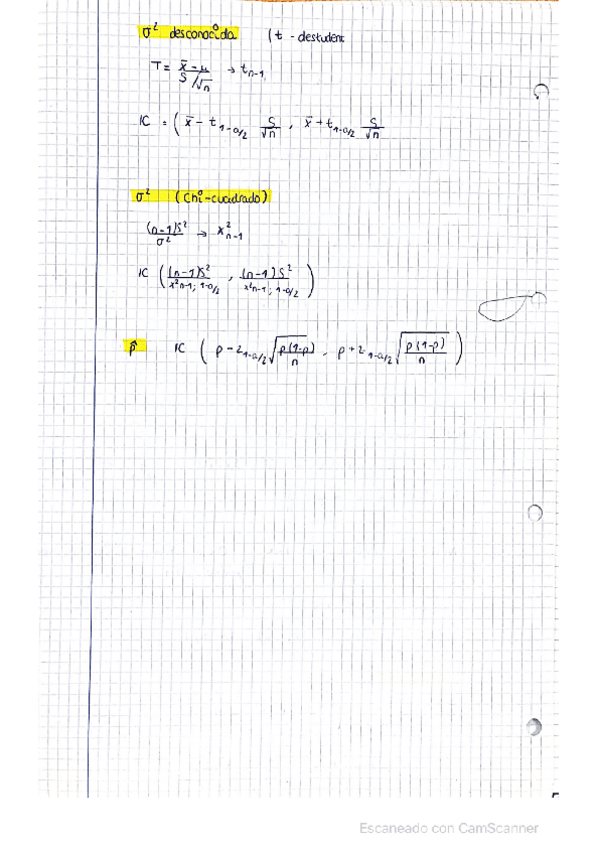 σ² desconocida (t - destudent
T = x̄ - μ / S/√n → t n-1,
IC = ( x̄ - t 1-α/2 S/√n , x̄ + t 1-α/2 S/√n
σ² (Chi-cuadrado)
(n-1)S² / σ² → x² n-1
IC ( (n-1)S² / x² n-1; 1-α/2 , (n-1)S² / x² n-1; 1-α/2 )
p̂ IC ( p - z 1-α/2 √ p(1-p) / n , p + z 1-α/2 √ p(1-p) / n )
Escaneado con CamScanner